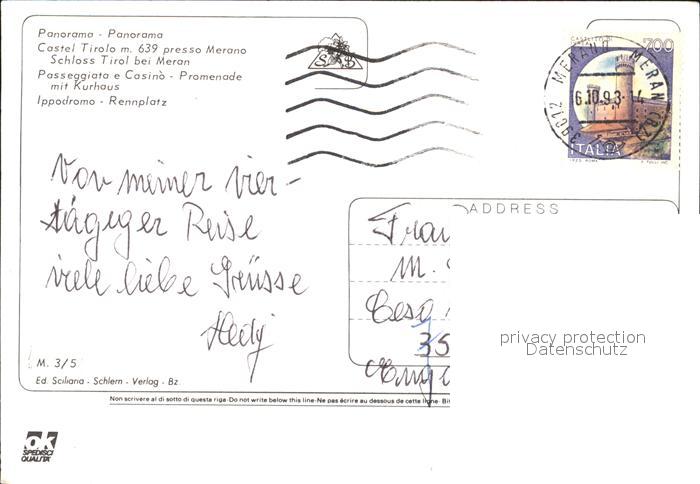 Panorama - Panorama
Castel Tirolo m. 639 presso Merano
Schloss Tirol bei Meran
Passeggiata e Casinò - Promenade
mit Kurhaus
Ippodromo - Rennplatz
S B
700
ITALIA
MERANO MERAN (BZ)
6.10.93-14
39012
Von meiner vier-
tägiger Reise
viele liebe Grüsse
Hedy
ADDRESS
Frau
M.
35
privacy protection
Datenschutz
M. 3/5
Ed. Sciliana - Schlern - Verlag - Bz.
Non scrivere al di sotto di questa riga-Do not write below this line-Ne pas écrire au dessous de cette ligne-
ok
SPEDISCI
QUALITÀ